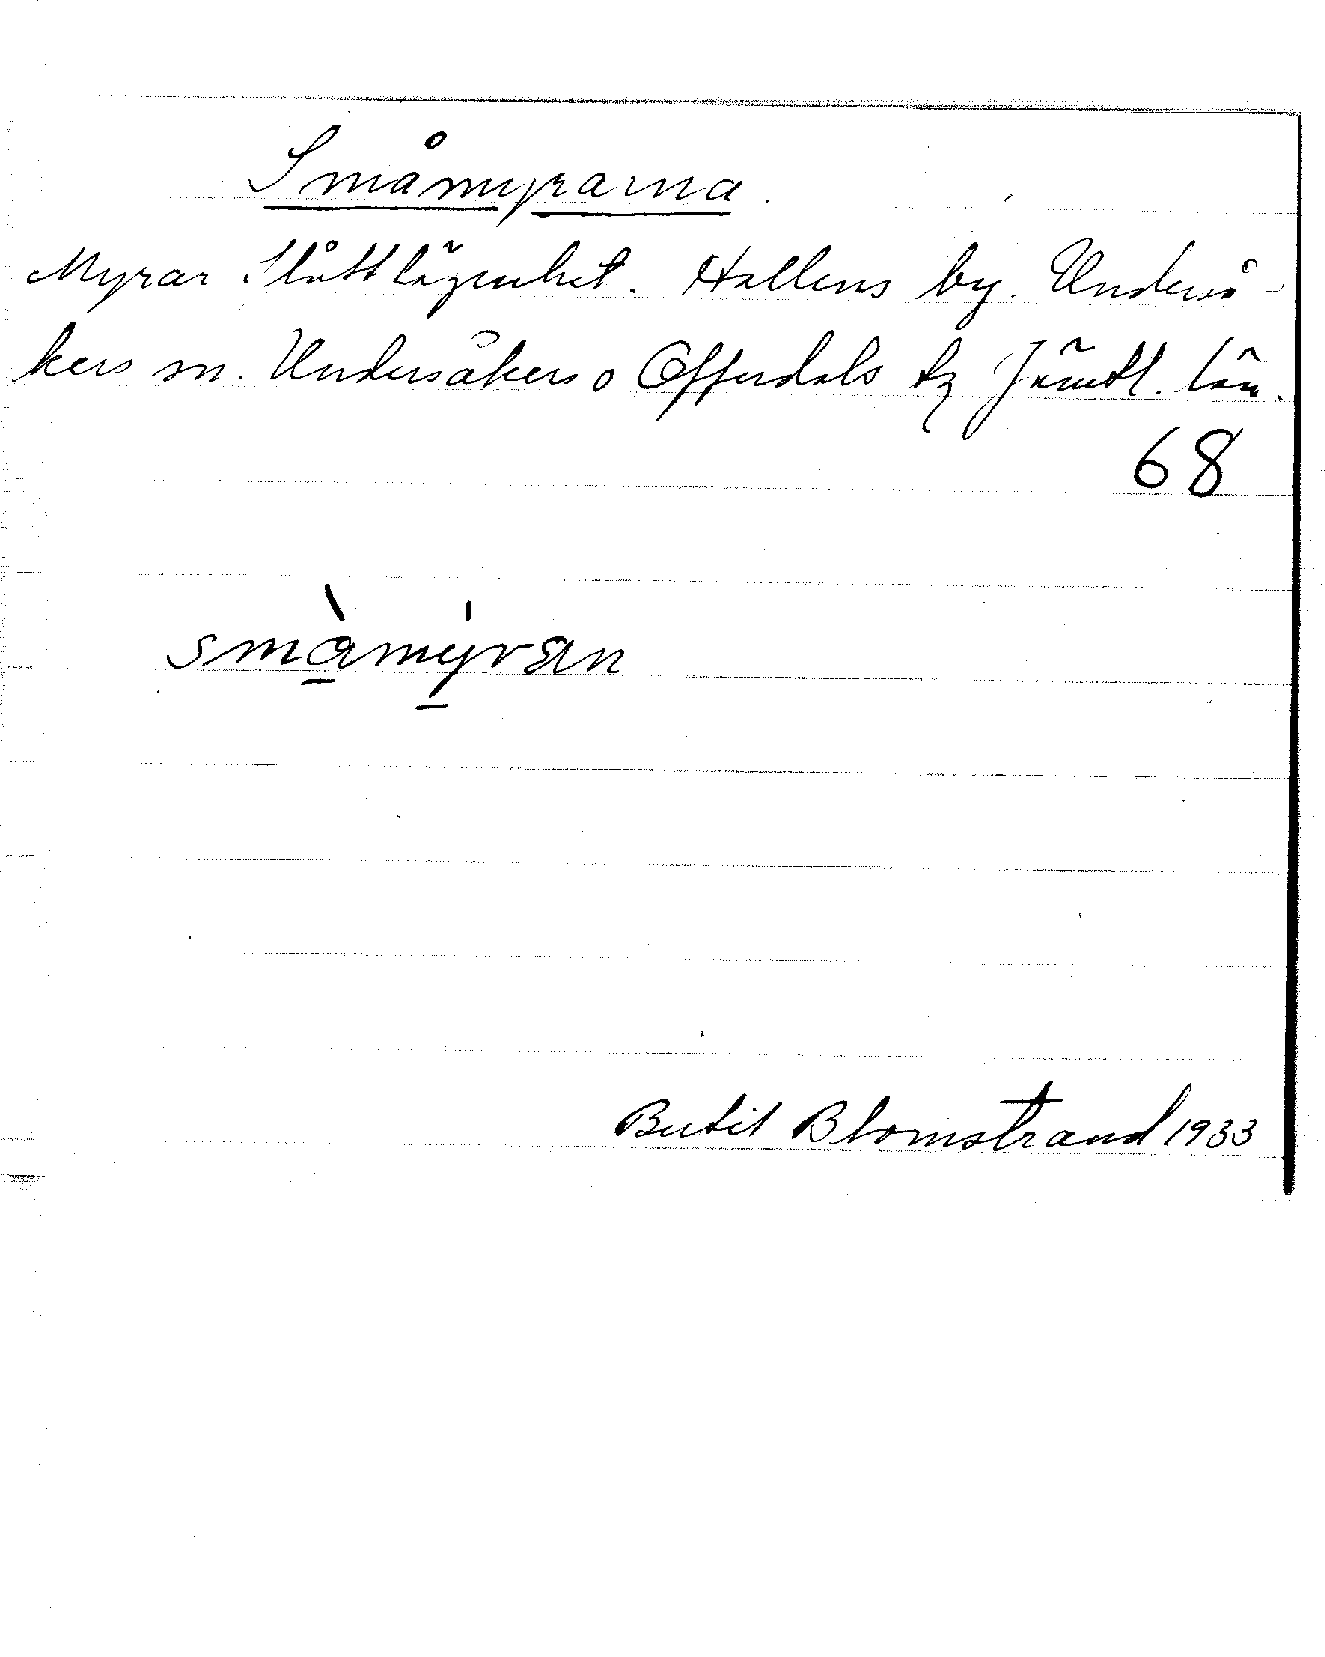 Småmyrarna.
Myrar. Slåttlägenhet. Hallens by. Underså-
kers sn. Undersåkers o Offerdals tg Jämtl. län.
68
smàmýran
Bertil Blomstrand 1933